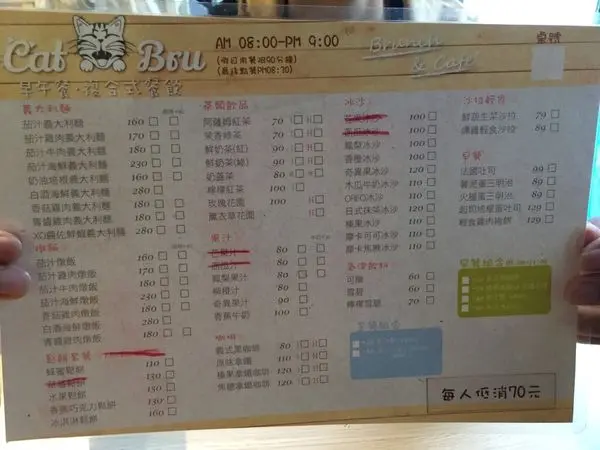 Cat Bou
早午餐·複合式餐館
AM 08:00-PM 9:00
(假日用餐限90分鐘)
(最後點餐PM08:30)
Brunch & Café
桌號
義大利麵
茄汁義大利麵 160
茄汁雞肉義大利麵 170
茄汁牛肉義大利麵 180
茄汁海鮮義大利麵 230
奶油培根義大利麵 160
白酒海鮮義大利麵 280
香菇雞肉義大利麵 180
青醬雞肉義大利麵 180
XO醬佐鮮蝦義大利麵 220
燉飯
茄汁燉飯 160
茄汁雞肉燉飯 170
茄汁牛肉燉飯 180
茄汁海鮮燉飯 230
香菇雞肉燉飯 180
白酒海鮮燉飯 280
青醬雞肉燉飯 180
鬆餅套餐
蜂蜜鬆餅 110
草莓鬆餅 130
水果鬆餅 150
香蕉巧克力鬆餅 130
冰淇淋鬆餅 160
茶類飲品
阿薩姆紅茶 70 I H
茉香綠茶 70 I H
鮮奶茶(紅) 90 I H
鮮奶茶(綠) 90 I H
奶蓋茶 80
檸檬紅茶 80
玫瑰花園 100 H
薰衣草花園 100 H
果汁
芒果汁 80
西瓜汁 80
鳳梨果汁 80
柳橙汁 80
奇異果汁 90
香蕉牛奶 100
咖啡
義式黑咖啡 80 I H
原味拿鐵 100 I H
榛果拿鐵咖啡 120 I H
焦糖拿鐵咖啡 120 I H
冰沙
芒果冰沙 100
西瓜冰沙 100
鳳梨冰沙 100
香橙冰沙 100
奇異果冰沙 120
木瓜牛奶冰沙 120
OREO冰沙 120
日式抹茶冰沙 120
榛果冰沙 120
摩卡可可冰沙 120
摩卡焦糖冰沙 120
氣泡飲料
可樂 60
雪碧 60
檸檬雪碧 70
沙拉輕食
鮮蔬生菜沙拉 79
燻雞輕食沙拉 89
早餐
法國吐司 99
薯泥蛋三明治 89
火腿蛋三明治 89
起司培根蛋吐司 129
輕食雞肉捲餅 129
每人低消70元